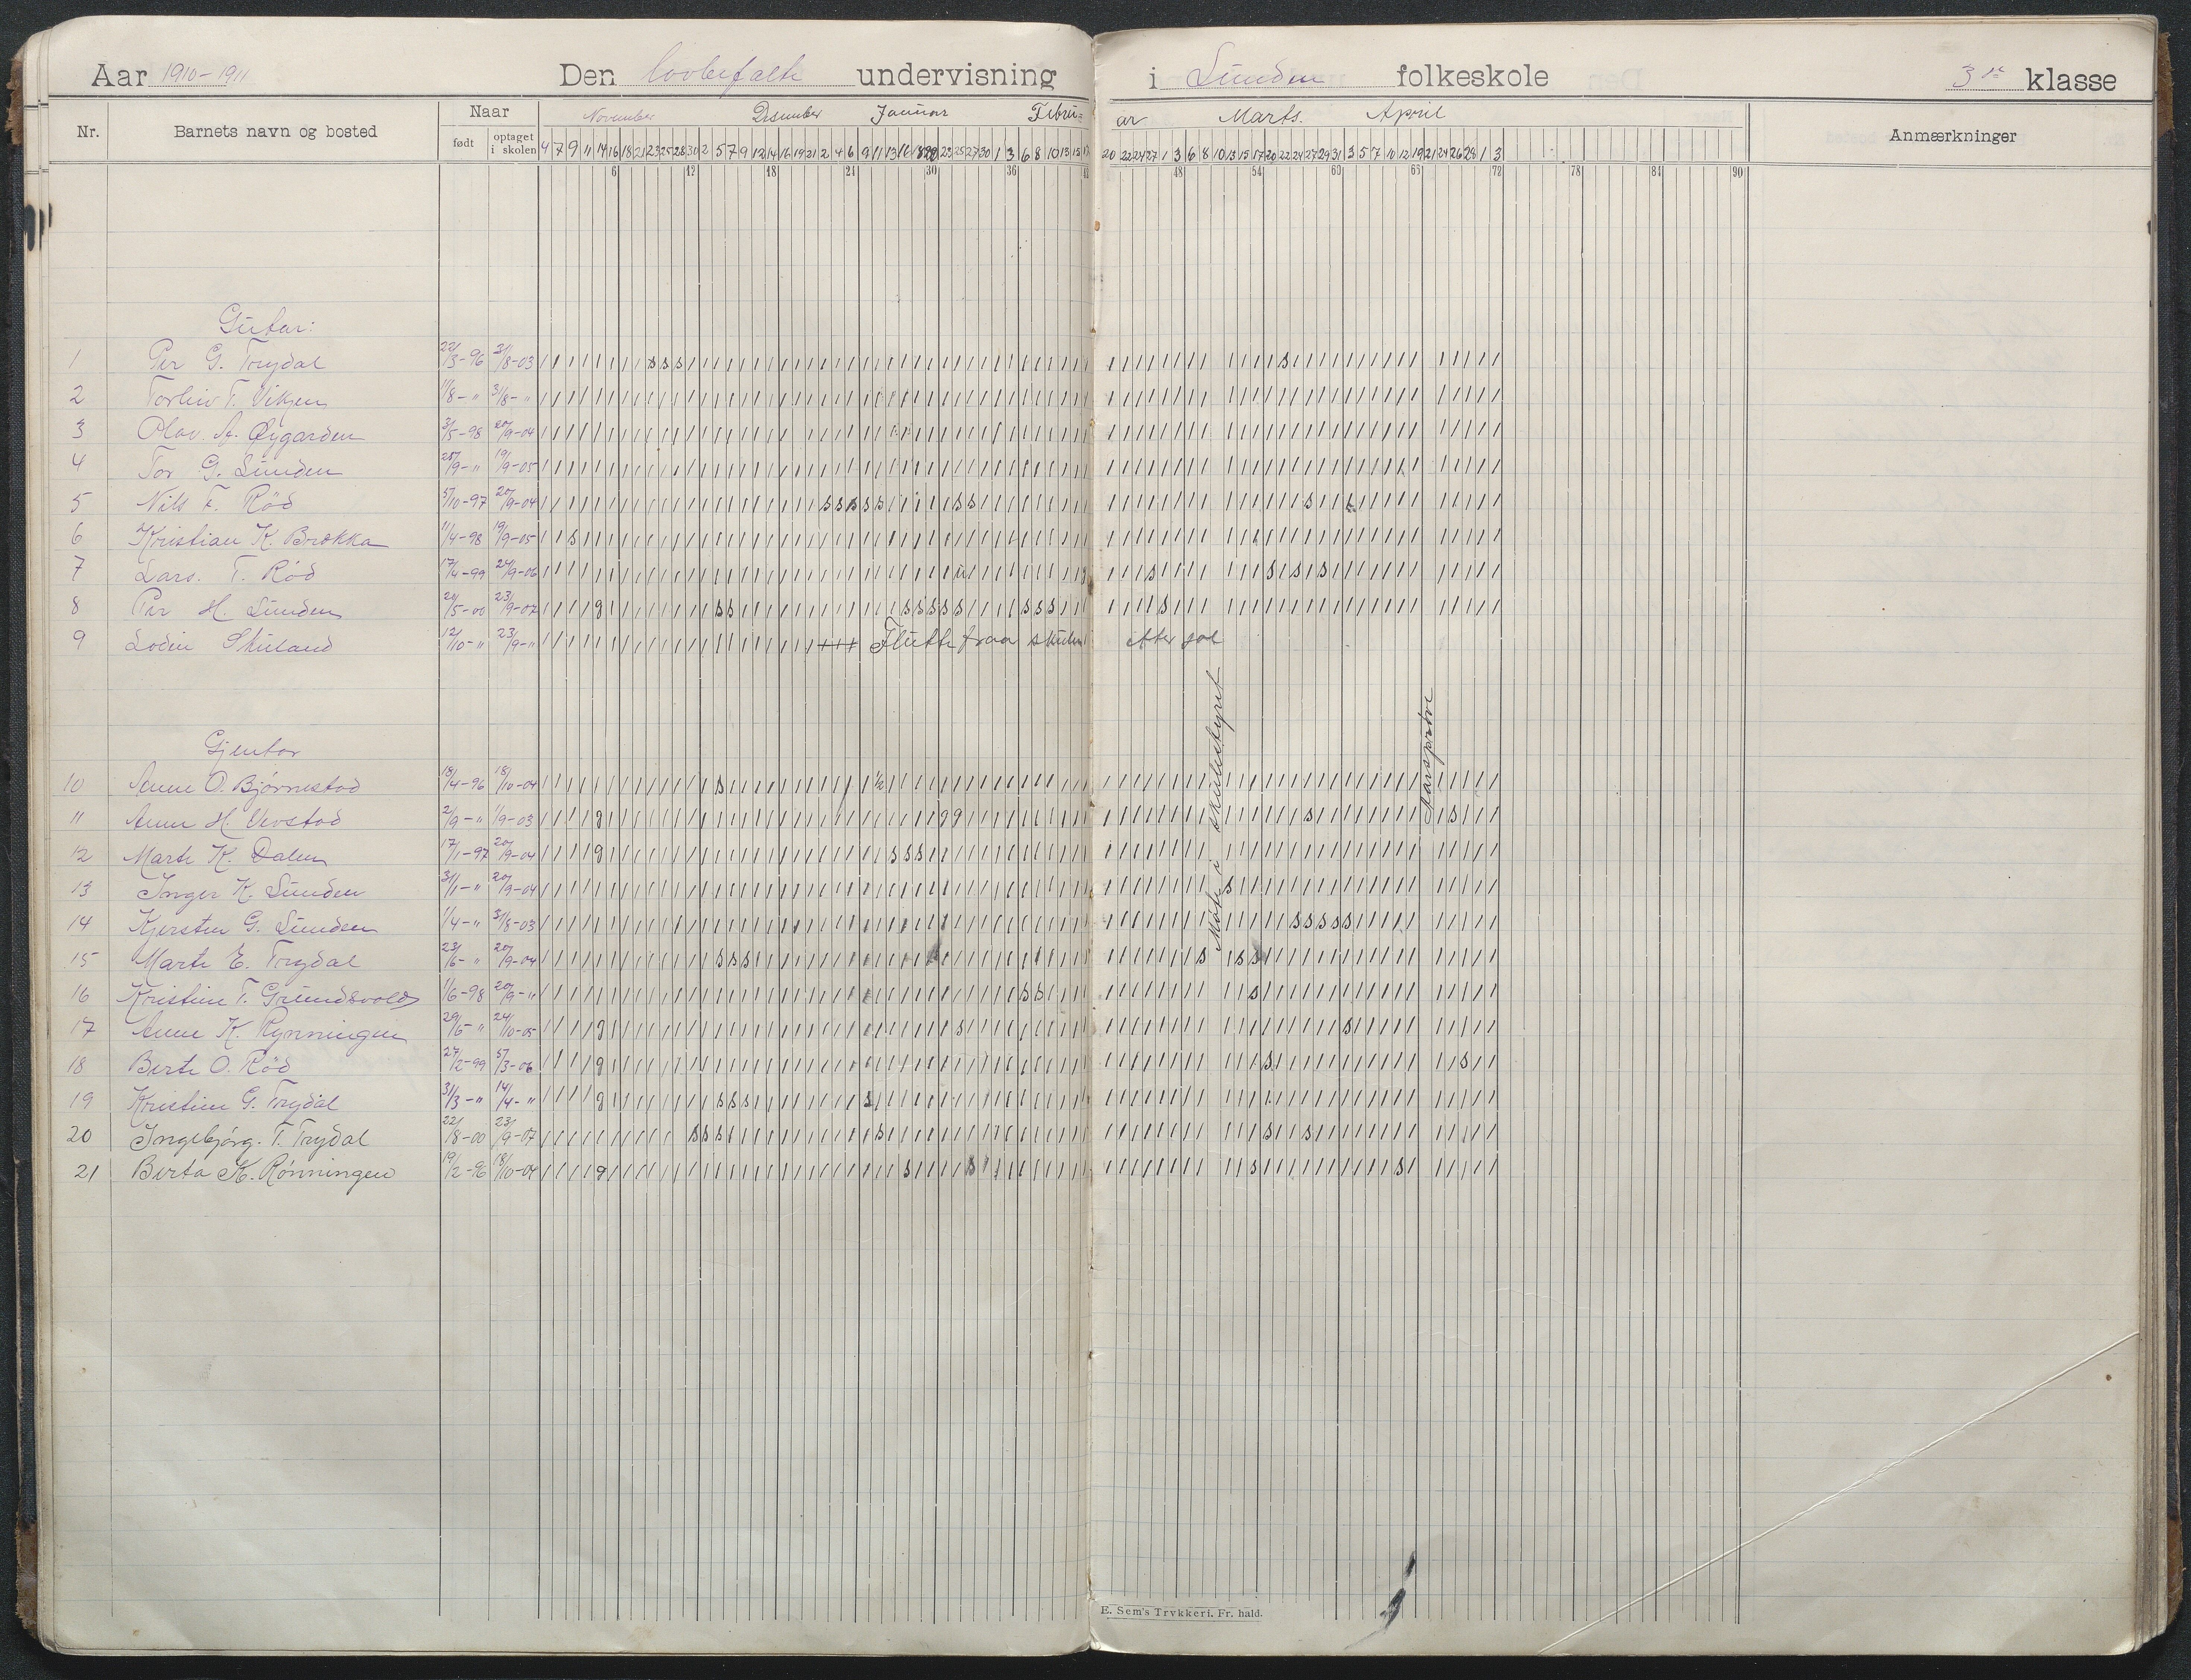 Aar 1910-1911 Den lovbefalte undervisning i Lunden folkeskole 3die klasse
Nr. Barnets navn og bosted Naar født optaget i skolen November Desember Januar Februar Marts. April Anmærkninger
4 7 9 11 14 16 18 21 23 25 28 30 2 5 7 9 12 14 16 19 21 2 4 6 9 11 13 16 18 20 23 25 27 30 1 3 6 8 10 13 15 17 20 22 24 27 1 3 6 8 10 13 15 17 20 22 24 27 29 31 3 5 7 10 12 19 21 24 26 28 1 3
6 12 18 24 30 36 42 48 54 60 65 72 78 84 90
Gutar:
1 Per G. Trydal 22/3-96 31/8-03
2 Torleiv T. Vikjen 11/8-" 31/8-"
3 Olav. A. Øygarden 3/5-98 20/9-04
4 Tor G. Lunden 20/9-" 19/9-05
5 Nils F. Röd 5/10-97 20/9-04
6 Kristian K. Brokka 11/4-98 19/9-05
7 Lars. T. Röd 17/4-99 24/9-06
8 Per H. Lunden 20/5-00 23/9-07
9 Lodin Skuland 12/10-" 23/9-" Flutte fraa skulen etter jol
Møte i skulestyret
Aarsprøve
Gjentor
10 Anne O. Bjørnestad 18/4-96 18/10-04
11 Anne H. Uvstad 2/9-" 1/9-03
12 Marte K. Dalen 17/1-97 20/9-04
13 Inger K. Lunden 31/1-" 20/9-04
14 Kjersten G. Lunden 1/4-" 31/8-03
15 Marte E. Trydal 23/6-" 20/9-04
16 Kristine T. Grundsvold 1/6-98 20/9-"
17 Anne K. Rynningen 29/6-" 24/10-05
18 Berte O. Röd 27/2-99 5/3-06
19 Kristine G. Trydal 31/3-" 14/4-"
20 Ingebjørg. T. Trydal 22/8-00 23/9-07
21 Berta K. Rönningen 19/2-96 18/10-04
E. Sem's Trykkeri. Fr. hald.